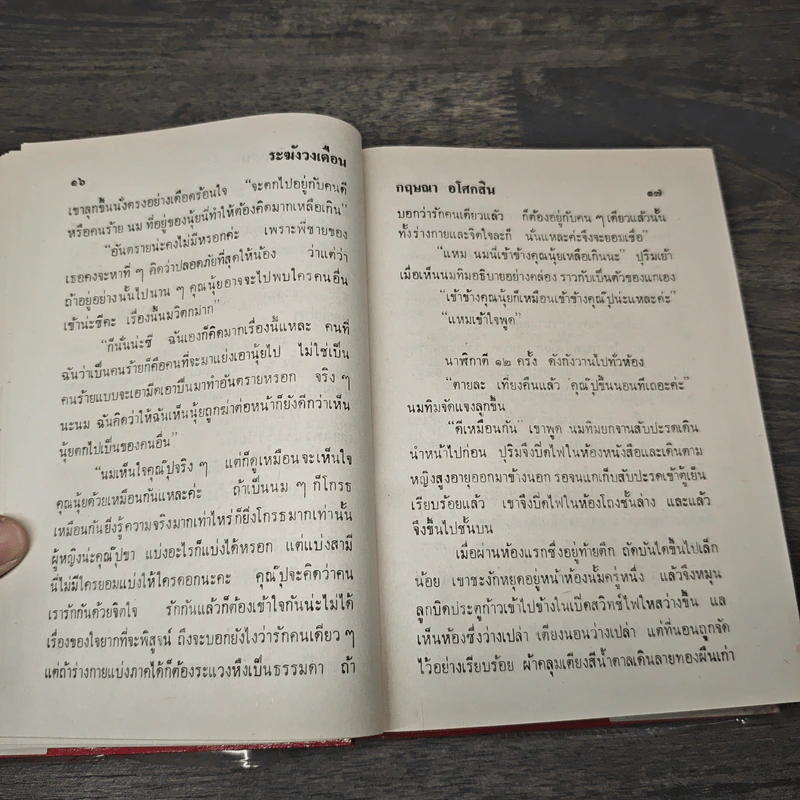 ๑๖
ระฆังวงเดือน
เขาลุกขึ้นนั่งตรงอย่างเดือดร้อนใจ “จะตกไปอยู่กับคนดี
หรือคนร้าย นม ที่อยู่ของนุ้ยนี่ทำให้ต้องคิดมากเหลือเกิน”
“อันตรายน่ะคงไม่มีหรอกค่ะ เพราะพี่ชายของ
เธอคงจะหาที่ ๆ คิดว่าปลอดภัยที่สุดให้น้อง ว่าแต่ว่า
ถ้าอยู่อย่างนั้นไปนาน ๆ คุณนุ้ยอาจจะไปพบใครคนอื่น
เข้าน่ะซีคะ เรื่องนี้นมวิตกมาก”
“ก็นั่นน่ะซี ฉันเองก็คิดมากเรื่องนี้แหละ คนที่
ฉันว่าเป็นคนร้ายก็คือคนที่จะมาแย่งเอานุ้ยไป ไม่ใช่เป็น
คนร้ายแบบจะเอามีดเอาปืนมาทำอันตรายหรอก จริง ๆ
นะนม ฉันคิดว่าให้ฉันเห็นนุ้ยถูกฆ่าต่อหน้าก็ยังดีกว่าเห็น
นุ้ยตกไปเป็นของคนอื่น”
“นมเห็นใจคุณปุ๋จริง ๆ แต่ก็ดูเหมือนจะเห็นใจ
คุณนุ้ยด้วยเหมือนกันแหละค่ะ ถ้าเป็นนม ๆ ก็โกรธ
เหมือนกันยิ่งรู้ความจริงมากเท่าไหร่ก็ยิ่งโกรธมากเท่านั้น
ผู้หญิงน่ะคุณปุ๋ขา แบ่งอะไรก็แบ่งได้หรอก แต่แบ่งสามี
นี่ไม่มีใครยอมแบ่งให้ใครดอกนะคะ คุณปุ๋จะคิดว่าคน
เรารักกันด้วยจิตใจ รักกันแล้วก็ต้องเข้าใจกันน่ะไม่ได้
เรื่องของใจยากที่จะพิสูจน์ ถึงจะบอกยังไงว่ารักคนเดียว ๆ
แต่ถ้าร่างกายแบ่งภาคได้ก็ต้องระแวงหึงเป็นธรรมดา ถ้า
กฤษณา อโศกสิน
๑๗
บอกว่ารักคนเดียวแล้ว ก็ต้องอยู่กับคน ๆ เดียวแล้วนั้น
ทั้งร่างกายและจิตใจละก็ นั่นแหละค่ะจึงจะยอมเชื่อ”
“แหม นมนี่เข้าข้างคุณนุ้ยเหลือเกินนะ” ปุริมเย้า
เมื่อเห็นนมทิมอธิบายอย่างคล่อง ราวกับเป็นตัวของแกเอง
“เข้าข้างคุณนุ้ยก็เหมือนเข้าข้างคุณปุ๋น่ะแหละค่ะ”
“แหมเข้าใจพูด”
นาฬิกาตี ๑๒ ครั้ง ดังกังวานไปทั่วห้อง
“ตายละ เที่ยงคืนแล้ว คุณปุ๋ขึ้นนอนทีเถอะค่ะ”
นมทิมจัดแจงลุกขึ้น
“ดีเหมือนกัน” เขาพูด นมทิมยกจานสับปะรดเดิน
นำหน้าไปก่อน ปุริมจึงปิดไฟในห้องหนังสือและเดินตาม
หญิงสูงอายุออกมาข้างนอก รอจนแกเก็บสับปะรดเข้าตู้เย็น
เรียบร้อยแล้ว เขาจึงปิดไฟในห้องโถงชั้นล่าง และแล้ว
จึงขึ้นไปชั้นบน
เมื่อผ่านห้องแรกซึ่งอยู่ท้ายตึก ถัดบันไดขึ้นไปเล็ก
น้อย เขาชะงักหยุดอยู่หน้าห้องนั้นครู่หนึ่ง แล้วจึงหมุน
ลูกบิดประตูก้าวเข้าไปข้างในเปิดสวิทซ์ไฟให้สว่างขึ้น แล
เห็นห้องซึ่งว่างเปล่า เตียงนอนว่างเปล่า แต่ที่นอนถูกจัด
ไว้อย่างเรียบร้อย ผ้าคลุมเตียงสีน้ำตาลเดินลายทองผืนเก่า